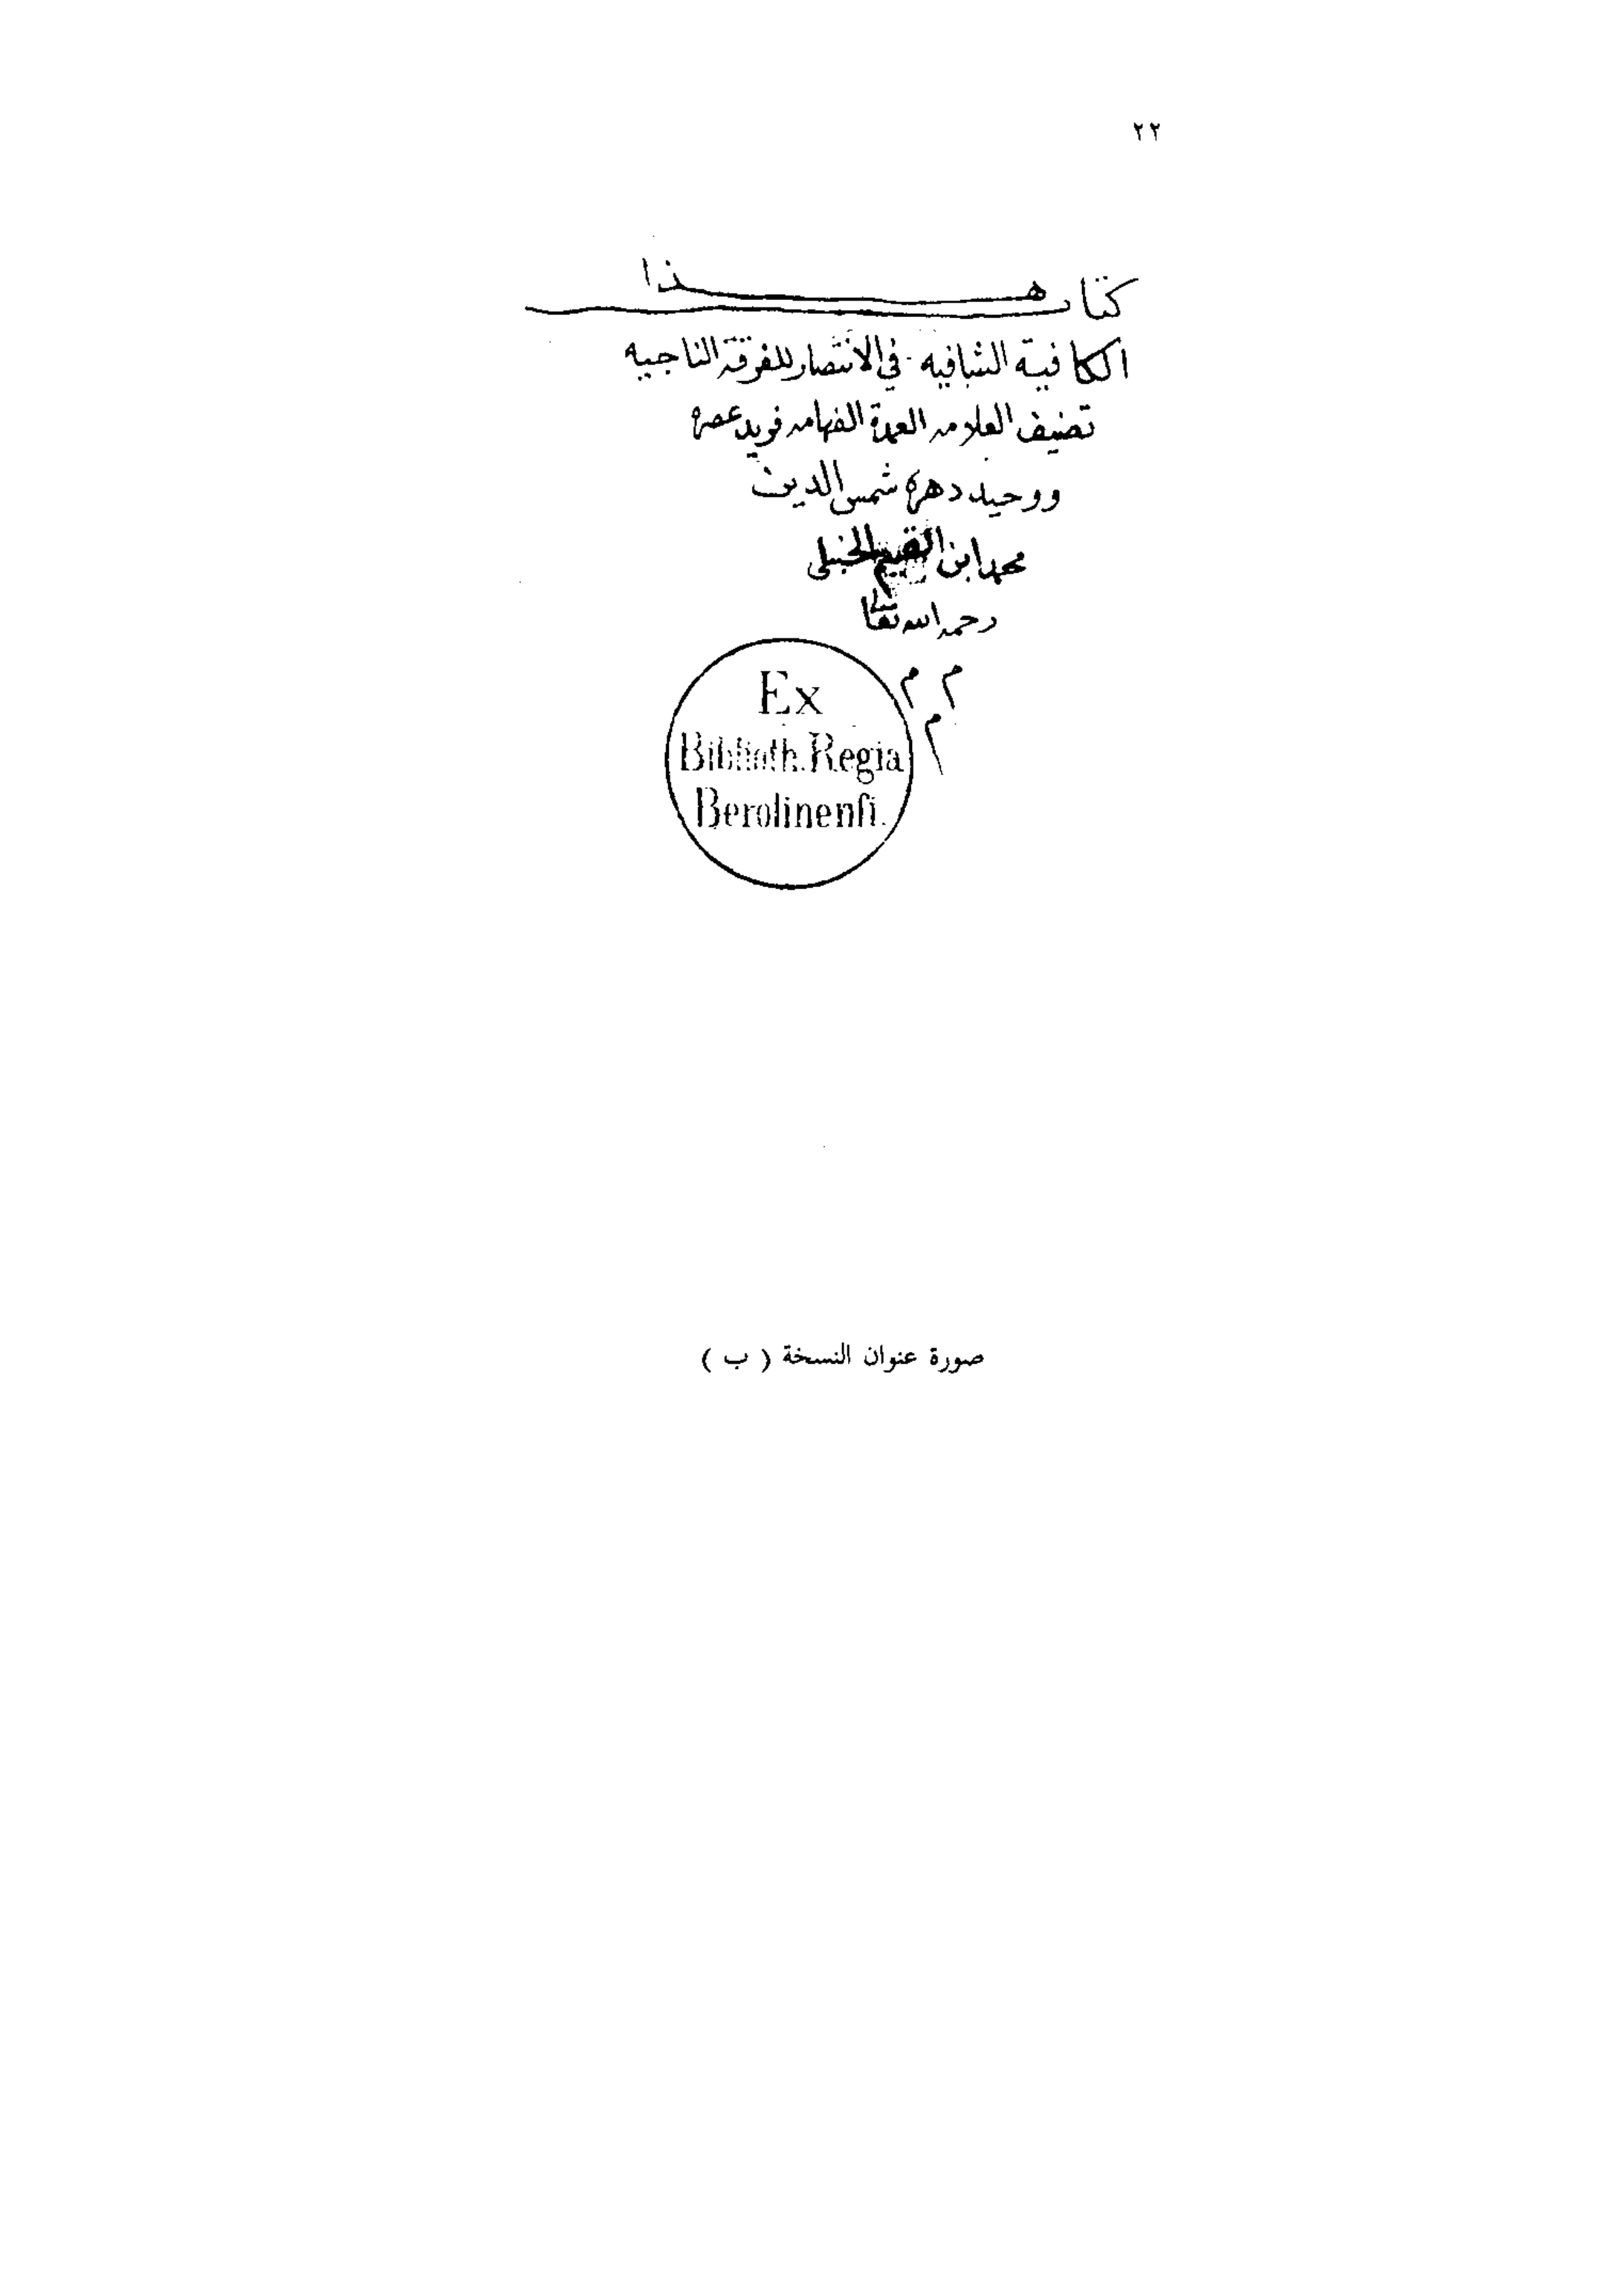 ٢٢
هذا كتاب
الكافية الشافيه في الانتصار للفرقة الناجيه
تصنيف العلامه العمدة الفهامه فريد عصره
ووحيد دهره شمس الدين
محمد ابن القيم الحنبلي
رحمه الله تعالى
م م
م
Ex
Biblioth. Regia
Berolinenſi.
صورة عنوان النسخة ( ب )